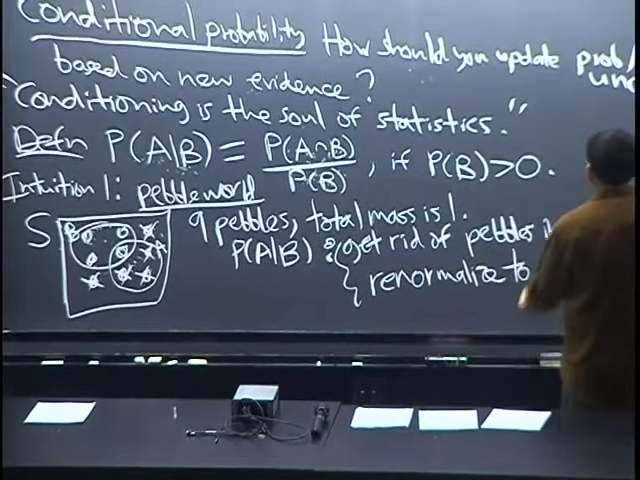 Conditional probability How should you update prob/
based on new evidence? unc
"Conditioning is the soul of statistics."
Defn P(A|B) = P(A∩B)/P(B), if P(B)>0.
Intuition 1: pebble world
S B A 9 pebbles, total mass is 1.
P(A|B): get rid of pebbles i
renormalize to